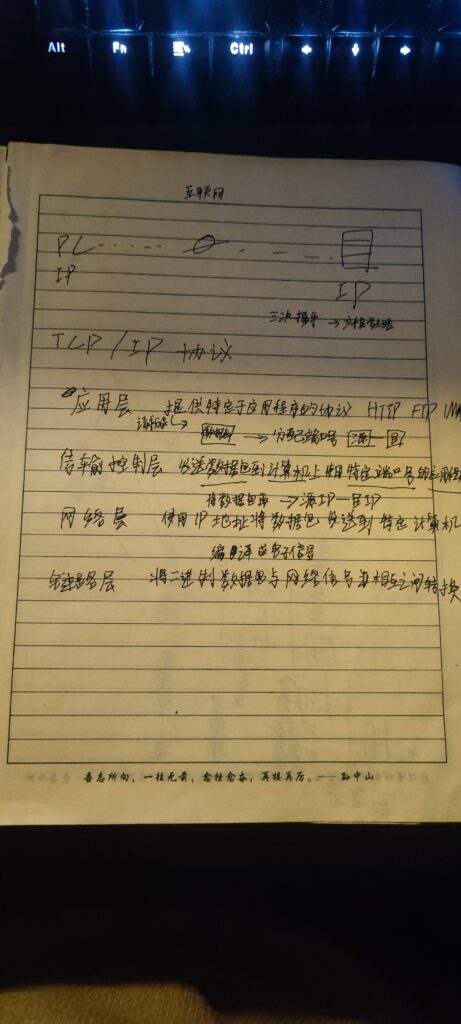 Alt Fn Ctrl
互联网
PC
IP
IP
三次握手 →
TCP/IP 协议
应用层 提供特定于应用程序的协议 HTTP FTP
数据 → 分配端口号 源 目
传输控制层 发送数据包到计算机上使用特定端口号的应用程
将数据包 → 源IP 目IP
网络层 使用IP地址将数据包发送到特定计算机
编译成电子信号
链路层 将二进制数据包与网络信号相互之间转换
吾志所向，一往无前，愈挫愈奋，再接再厉。——孙中山